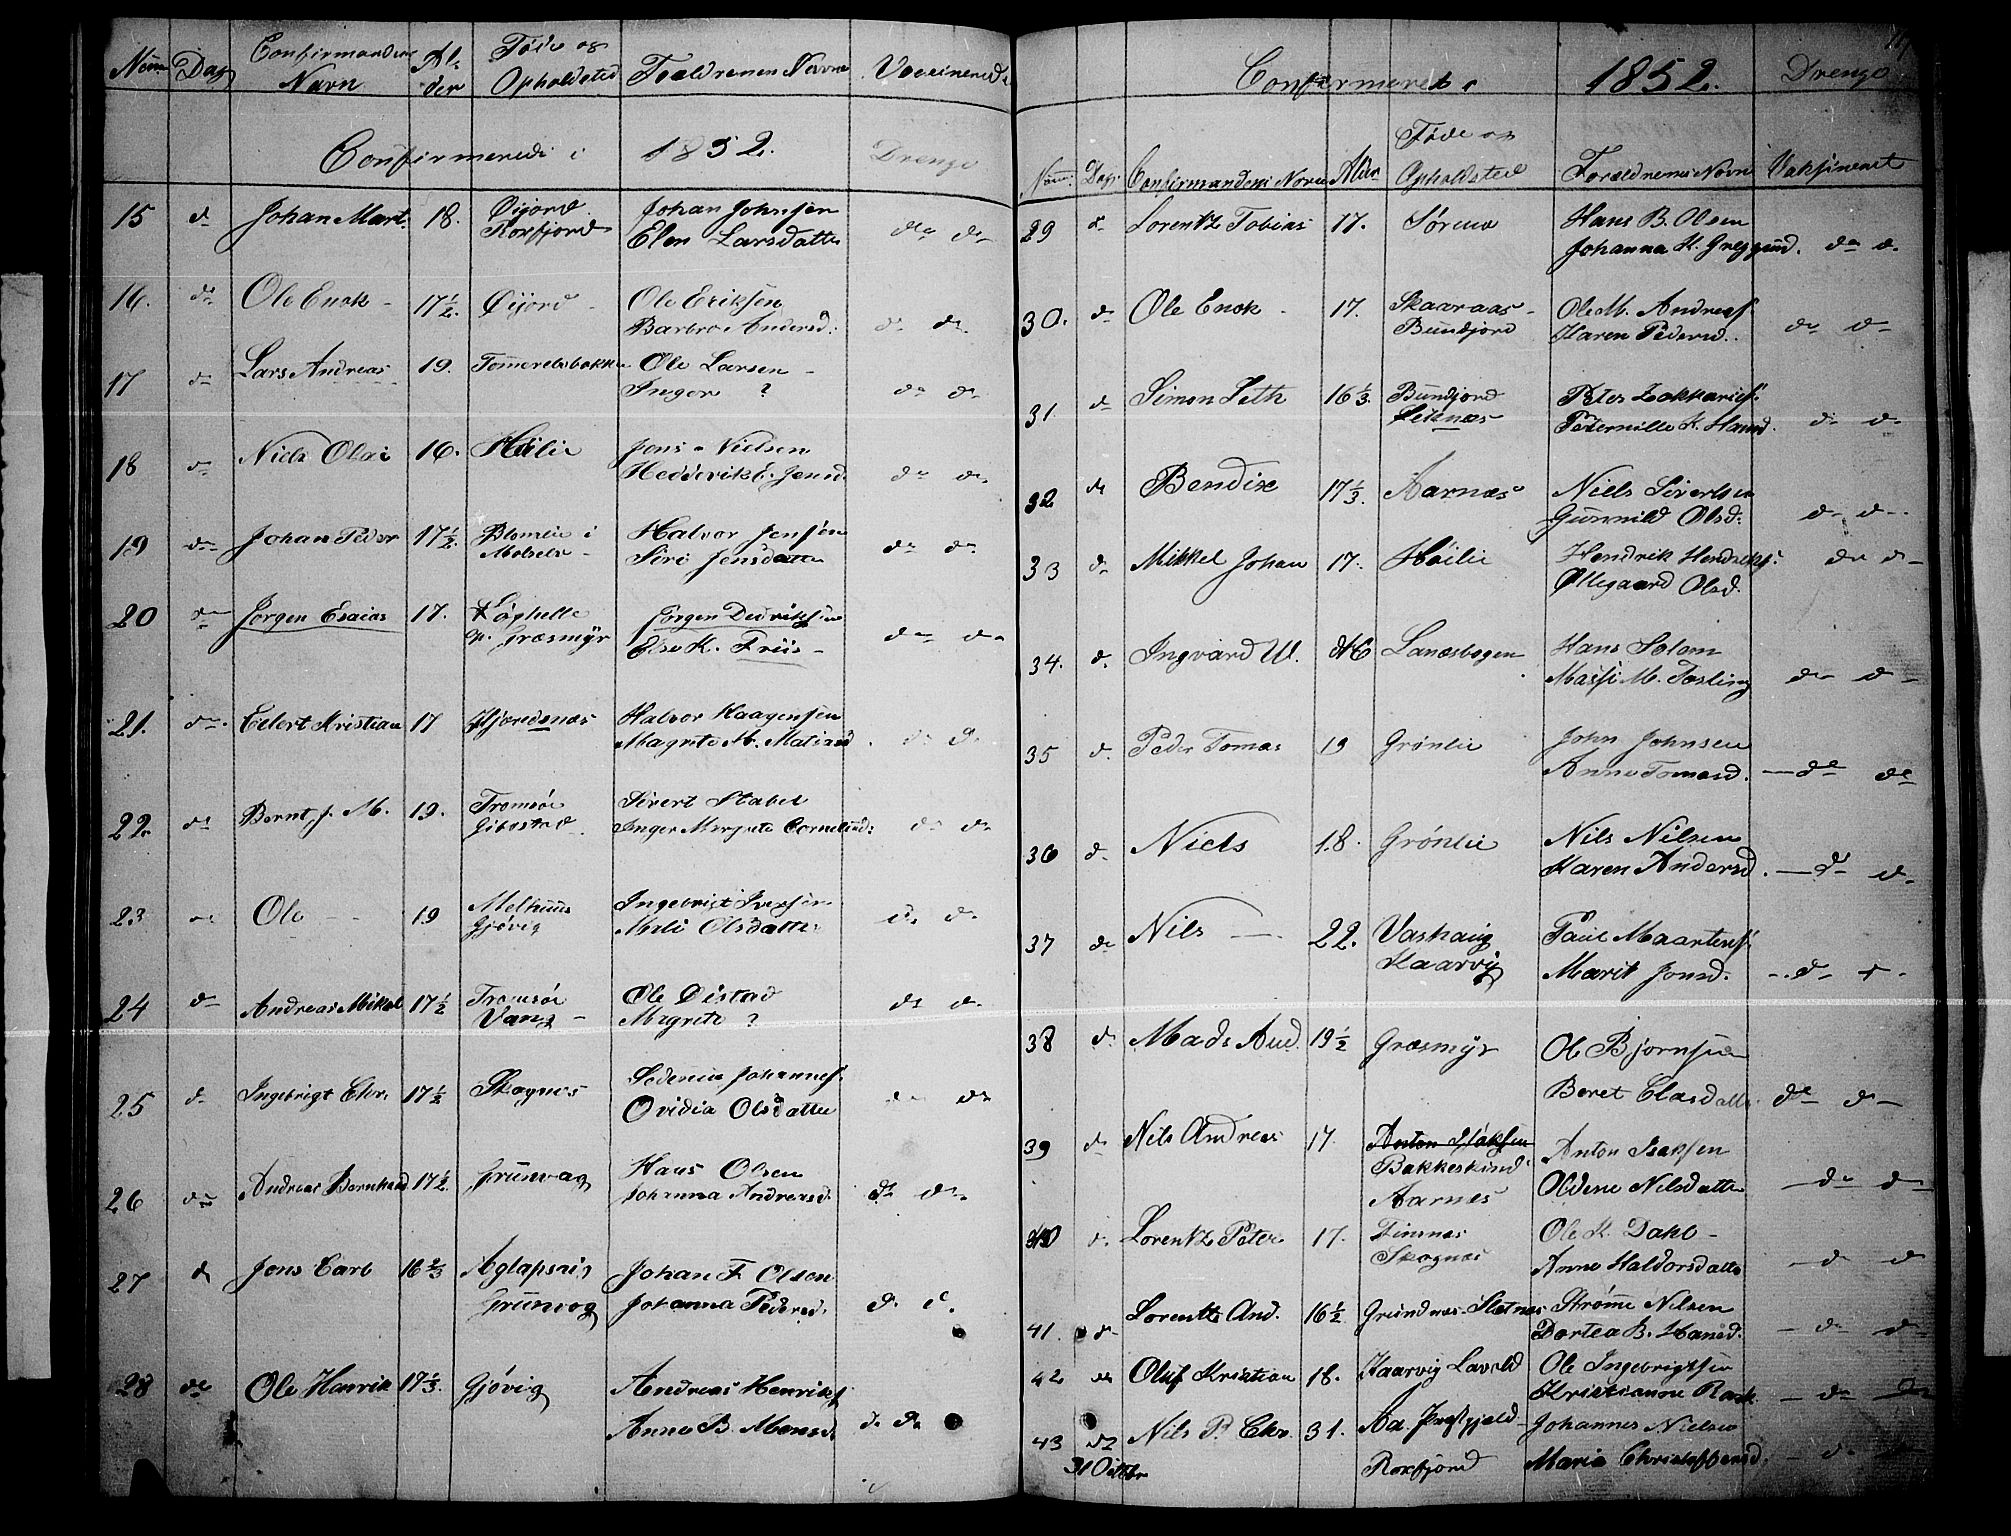 Num Dag Confirmandens Navn Al-der Føde og Opholdsted Forældrenes Navne Vaccinerede
Confirmerede i 1852. Drenge
15 d Johan Mart. 18. Øijord Johan Johnsen do d
Roxfjord Elen Larsdatter
16. d Ole Enok 17½. Øijord Ole Eriksen
Barbro Andersd: d d
17 d Lars Andreas 19. Tømmeråsbakken Ole Larsen
Inger ? d d
18 d Niels Olai 16. Høilie Jens Nielsen
Hedderik E. Jensd. d d
19 d Johan Peder 17½. Blomlie i Halvor Jensen
Målselv Siri Jensdatter d d
20 d Jørgen Esaias 17. Løghelle Jørgen Dedriksen
op. Græsmyr Else K. Friis d d
21. d Eilert Kristian 17 Hjøredsnæs Halvor Haagensen
Magrete M. Matiasd. d d
22. d Bernt J. M. 19. Tromsøe Sivert Stabel
Gibostad Inger Margrete Corneliusd: d d
23 d Ole 19 Melhuus Ingebrigt Iversen
Gjøvig Mali Olsdatter d d
24 d Andreas Mikal 17½ Tromsøe Ole Distad d d
Vang Magrete ?
25 d Ingebrigt Chr. 17½ Skognæs Johannes.
Ovidia Olsdatter d d
26 d Andreas Bernhard 17½. Grunvåg Hans Olsen
Johanna Andreasd. d d
27 d Jens Carl 16⅔ Aglapsvig Johan F. Olsen
Grunvog Johanna Pedersd. d d.
28 d Ole Henrik 17⅓. Gjøvig Andreas Henriks
Anne B. Monsd. d d
Confirmerede i 1852. Drenge
Num: Dag. Confirmandens Navn Alder Føde og Opholdsted Forældrenes Navn Vaksineret
29 d Lorentz Tobias 17. Søreng Hans B. Olsen
Johanna K. Greggusd. d d.
30. d Ole Enok 17. Skaaraas Ole M. Andreas
Bundjord Karen Pedersd. d d
31. d Simon Seth 16⅓. Bundjord Peter Zakkarias.
Leiknæs Peternille K. Hansd. d d
32 d Bendix 17⅓. Aarnæs Niels Sivertsen
Gunnild Olsd. d d
33 d Mikkel Johan 17. Høilie Hendrik Hendriks.
Øllegaard Olsd. d d
34. d. Ingvard U. 16 Lanæsbogen Hans Solem
Massi M. Tosling d d
35 d. Peder Tomas 19 Grønlie John Johnsen
Anne Tomasd. d d
36 d. Niels 18. Grønlie Nils Nilsen
Karen Andersd. d d
37 d Nils 22. Vashaug Paul Maartens
Kaarvig Marit Jonsd. d +
38 d. Mads And. 19½ Græsmyr Ole Bjørnsen
Beret Clasdatter d d
39 d Nils Andreas 17. Anton Isaksen
Bakkeskind Anton Isaksen
Aarnæs Oldine Nilsdatter d d
40 d. Lorentz Peter 17. Finnæs Ole K. Dahl
Skognæs Anne Haldorsdatter d d
41. d Lorentz And. 16½ Grundnæs-Sletnæs Strøme Nilsen
Dortea B. Hansd. d d
42 d Oluf Kristian 18. Kaarvig Lavold Ole Ingebrigtsen
Kristianne Rask d d
43 d Nils P. Chr. 31. Johannes Nielsen
31 Octbr Roxfjord Maria Christoffersd. d